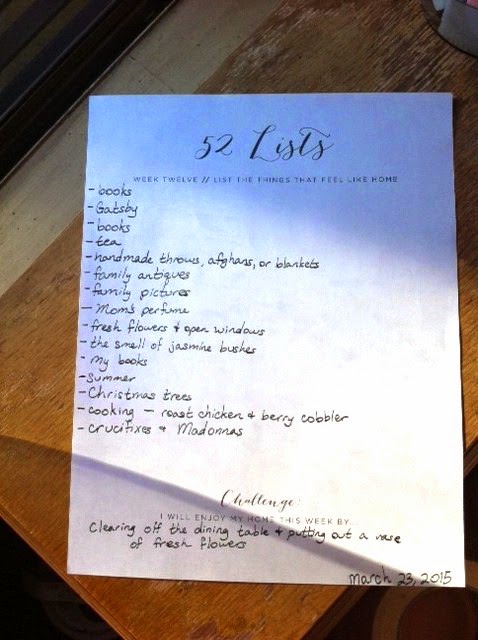 52 Lists
WEEK TWELVE // LIST THE THINGS THAT FEEL LIKE HOME
- books
- Gatsby
- books
- tea
- handmade throws, afghans, or blankets
- family antiques
- family pictures
- Mom's perfume
- fresh flowers & open windows
- the smell of jasmine bushes
- my books
- Summer
- Christmas trees
- cooking — roast chicken & berry cobbler
- crucifixes & Madonnas
Challenge:
I WILL ENJOY MY HOME THIS WEEK BY:
Clearing off the dining table & putting out a vase
of fresh flowers
march 23, 2015